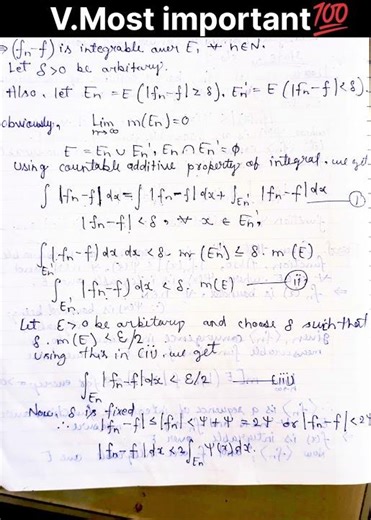 V.Most important💯
⇒ (fn-f) is integrable over E, ∀ n∈N.
Let δ>0 be arbitary.
Also, let En = E(|fn-f| ≥ δ), En' = E(|fn-f|<δ).
obviously, Lim n→∞ m(En)=0
E = En ∪ En', En ∩ En' = ϕ.
Using countable additive property of integral, we get
∫ |fn-f| dx = ∫ |fn-f| dx + ∫En' |fn-f| dx —— (i)
|fn-f| < δ, ∀ x ∈ En',
∫En' |fn-f| dx dx < δ. m(En') ≤ δ. m(E)
∫En' |fn-f| dx < δ. m(E) —— (ii)
Let ε>0 be arbitary and choose δ such that
δ. m(E) < ε/2
Using this in (ii), we get
∫En |fn-f| dx < ε/2 —— (iii)
Now, δ is fixed
∴ |fn-f| ≤ |fn| < ψ+ψ = 2ψ or |fn-f| < 2ψ
|fn-f| dx < 2∫En ψ(x) dx.